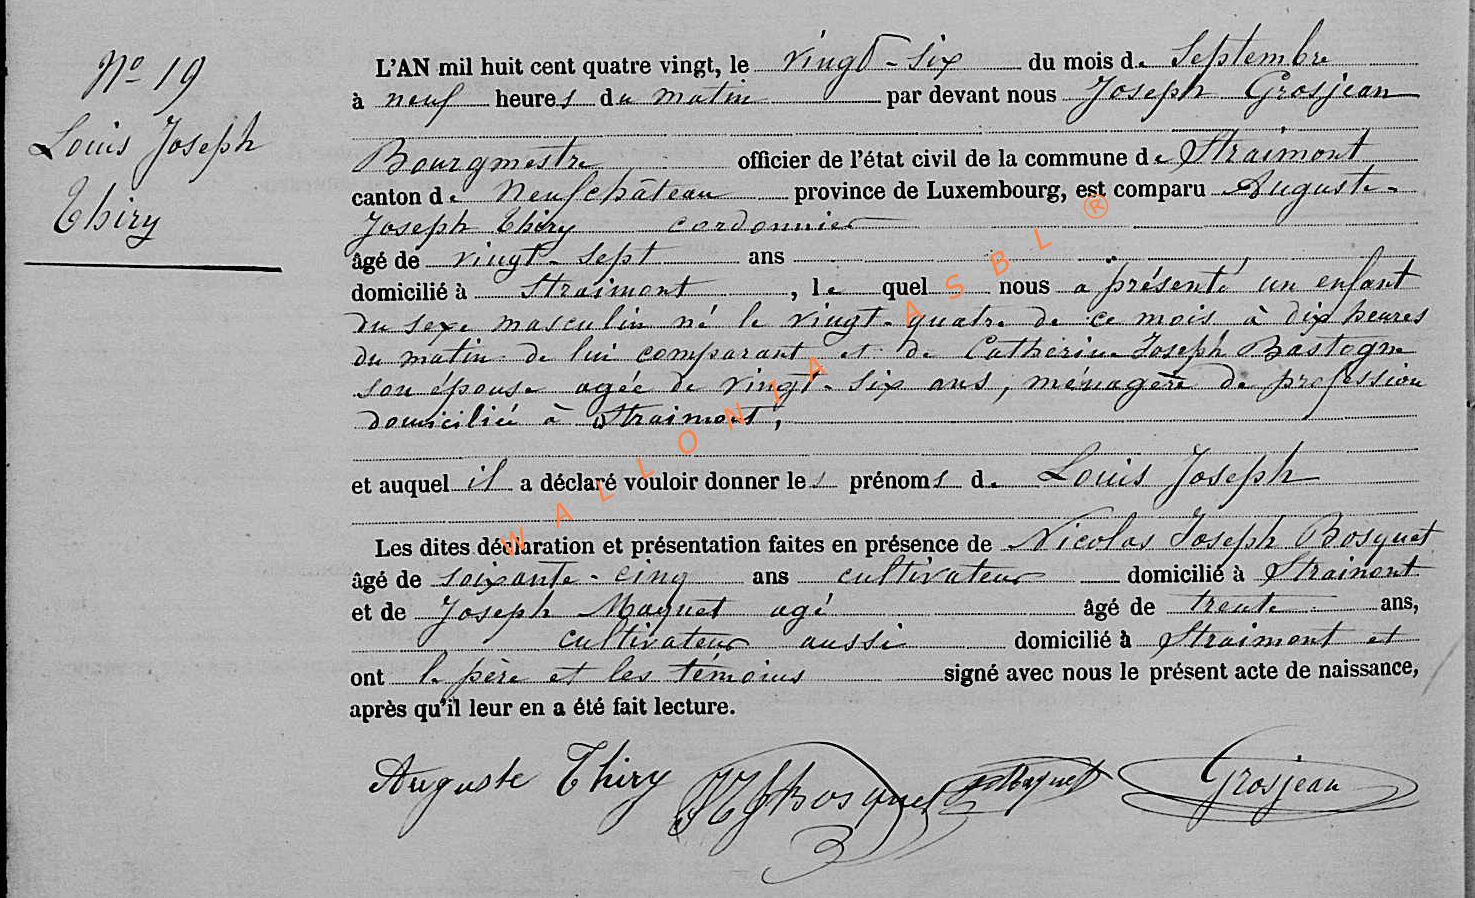 Nº 19
Louis Joseph
Thiry
L'AN mil huit cent quatre vingt, le vingt-six du mois de Septembre
à neuf heures du matin par devant nous Joseph Grosjean
Bourgmestre officier de l'état civil de la commune de Straimont
canton de Neufchâteau province de Luxembourg, est comparu Auguste-
Joseph Thiry cordonnier
âgé de vingt-sept ans
domicilié à Straimont, le quel nous a présenté un enfant
du sexe masculin né le vingt-quatre de ce mois, à dix heures
du matin de lui comparant et de Catherine Joseph Bastogne
son épouse agée de vingt-six ans, ménagère de profession
domiciliée à Straimont,
et auquel il a déclaré vouloir donner les prénoms de Louis Joseph
Les dites déclaration et présentation faites en présence de Nicolas Joseph Bosquet
âgé de soixante-cinq ans cultivateur domicilié à Straimont
et de Joseph Maquet agé âgé de trente ans,
cultivateur aussi domicilié à Straimont et
ont le père et les témoins signé avec nous le présent acte de naissance,
après qu'il leur en a été fait lecture.
Auguste Thiry NJBosquet JMaquet Grosjean
WALLONIA ASBL ®